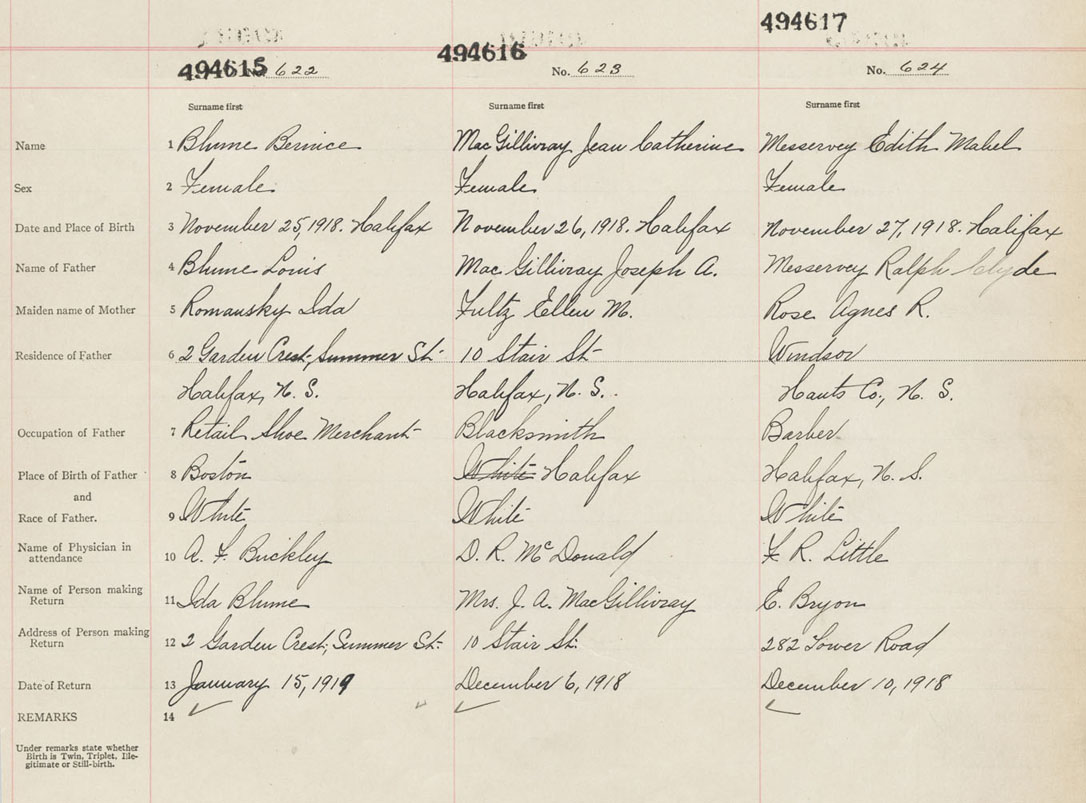 494615 494616 494617
No. 622 No. 623 No. 624
Surname first Surname first Surname first
Name 1 Blume Bernice MacGillivray Jean Catherine Messervey Edith Mabel
Sex 2 Female Female Female
Date and Place of Birth 3 November 25, 1918. Halifax November 26, 1918. Halifax November 27, 1918. Halifax
Name of Father 4 Blume Louis MacGillivray Joseph A. Messervey Ralph Clyde
Maiden name of Mother 5 Romansky Ida Fultz Ellen M. Rose Agnes R.
Residence of Father 6 2 Garden Crest, Summer St. 10 Stair St. Windsor
Halifax, N. S. Halifax, N. S. Hants Co., N. S.
Occupation of Father 7 Retail Shoe Merchant Blacksmith Barber
Place of Birth of Father 8 Boston White Halifax Halifax, N. S.
and
Race of Father. 9 White White White
Name of Physician in
attendance 10 A. F. Buckley D. R. McDonald F. R. Little
Name of Person making
Return 11 Ida Blume Mrs. J. A. MacGillivray E. Bryon
Address of Person making
Return 12 2 Garden Crest, Summer St. 10 Stair St. 282 Tower Road
Date of Return 13 January 15, 1919 December 6, 1918 December 10, 1918
REMARKS 14
Under remarks state whether
Birth is Twin, Triplet, Ille-
gitimate or Still-birth.